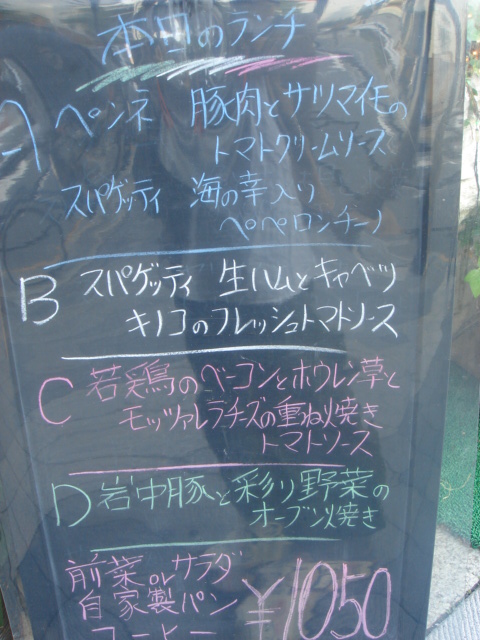 本日のランチ
A ペンネ 豚肉とサツマイモの
トマトクリームソース
スパゲッティ 海の幸入り
ペペロンチーノ
B スパゲッティ 生ハムとキャベツ
キノコのフレッシュトマトソース
C 若鶏のベーコンとホウレン草と
モッツァレラチーズの重ね焼き
トマトソース
D 岩中豚と彩り野菜の
オーブン焼き
前菜orサラダ
自家製パン
コーヒー
¥1050